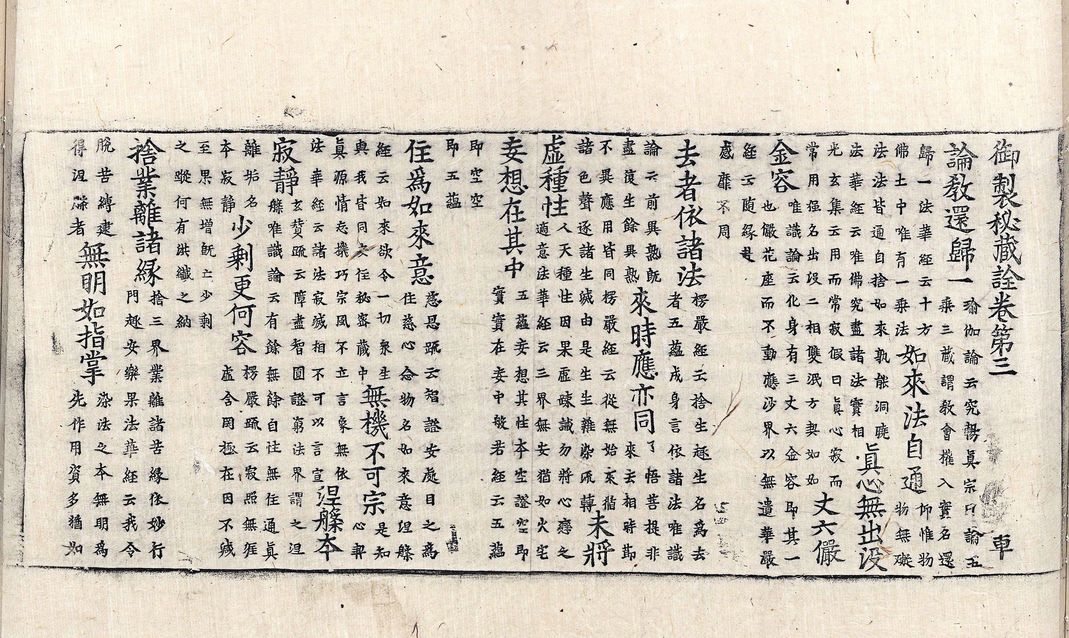 御製秘藏詮卷第三 車
論教還歸一 瑜伽論云究暢真宗曰論五
乘三藏謂教會攉入實名還
歸一法華經云十方
佛土中唯有一乘法 如來法自通 仰惟物
物無礙
法法皆通自捨如來孰能洞曉
法華經云唯佛究盡諸法實相 真心無出没
光玄集云用而常寂假曰真心寂而
常用徑名出没二相雙泯方契如如 丈六儼
金容 唯識論云化身有三丈六金容即其一
也儼花座而不動應沙界以無遺華嚴
經云随緣赴
感靡不周
去者依諸法 楞嚴經云捨生趣生名爲去
者五藴成身言依諸法唯識
論云前異熟既
盡復生餘異熟 來時應亦同 了悟菩提非
來去相時即
不異應用皆同楞嚴經云從無始來循
諸色聲逐諸生滅由是生生雜染流轉 未將
虛種性 人天種性因果虛疎誡勿將心應之
適意法華經云三界無安猶如火宅
妄想在其中 五藴妄想其性本空證空即
實實在妄中故若經云五藴
即空空
即五藴
住爲如來意 慈恩疏云智證安處目之爲
住慈心念物名如來意涅槃
經云如來欲令一切衆生
與我皆同安住秘密藏中 無機不可宗 是知
心契
真源情忘機巧宗風不立言象無依
法華經云諸法寂滅相不可以言宣 涅槃本
寂靜 玄賛疏云障盡智圓證窮法界謂之涅
槃唯識論云有餘無餘自性無住通真
離垢名
本寂靜 少剩更何容 楞嚴疏云寂照無
虛令罔極在因不減
至果無增既亡少剩
之蹤何有洪纖之納
捨業離諸緣 捨三界業離諸苦緣依妙行
門趣安樂果法華經云我令
脫苦縛逮
得涅槃者 無明如指掌 染法之本無明爲
先作用寔多猶如